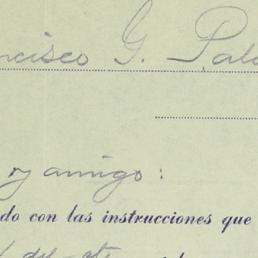 ncisco G. Pala
y amigo:
do con las instrucciones que